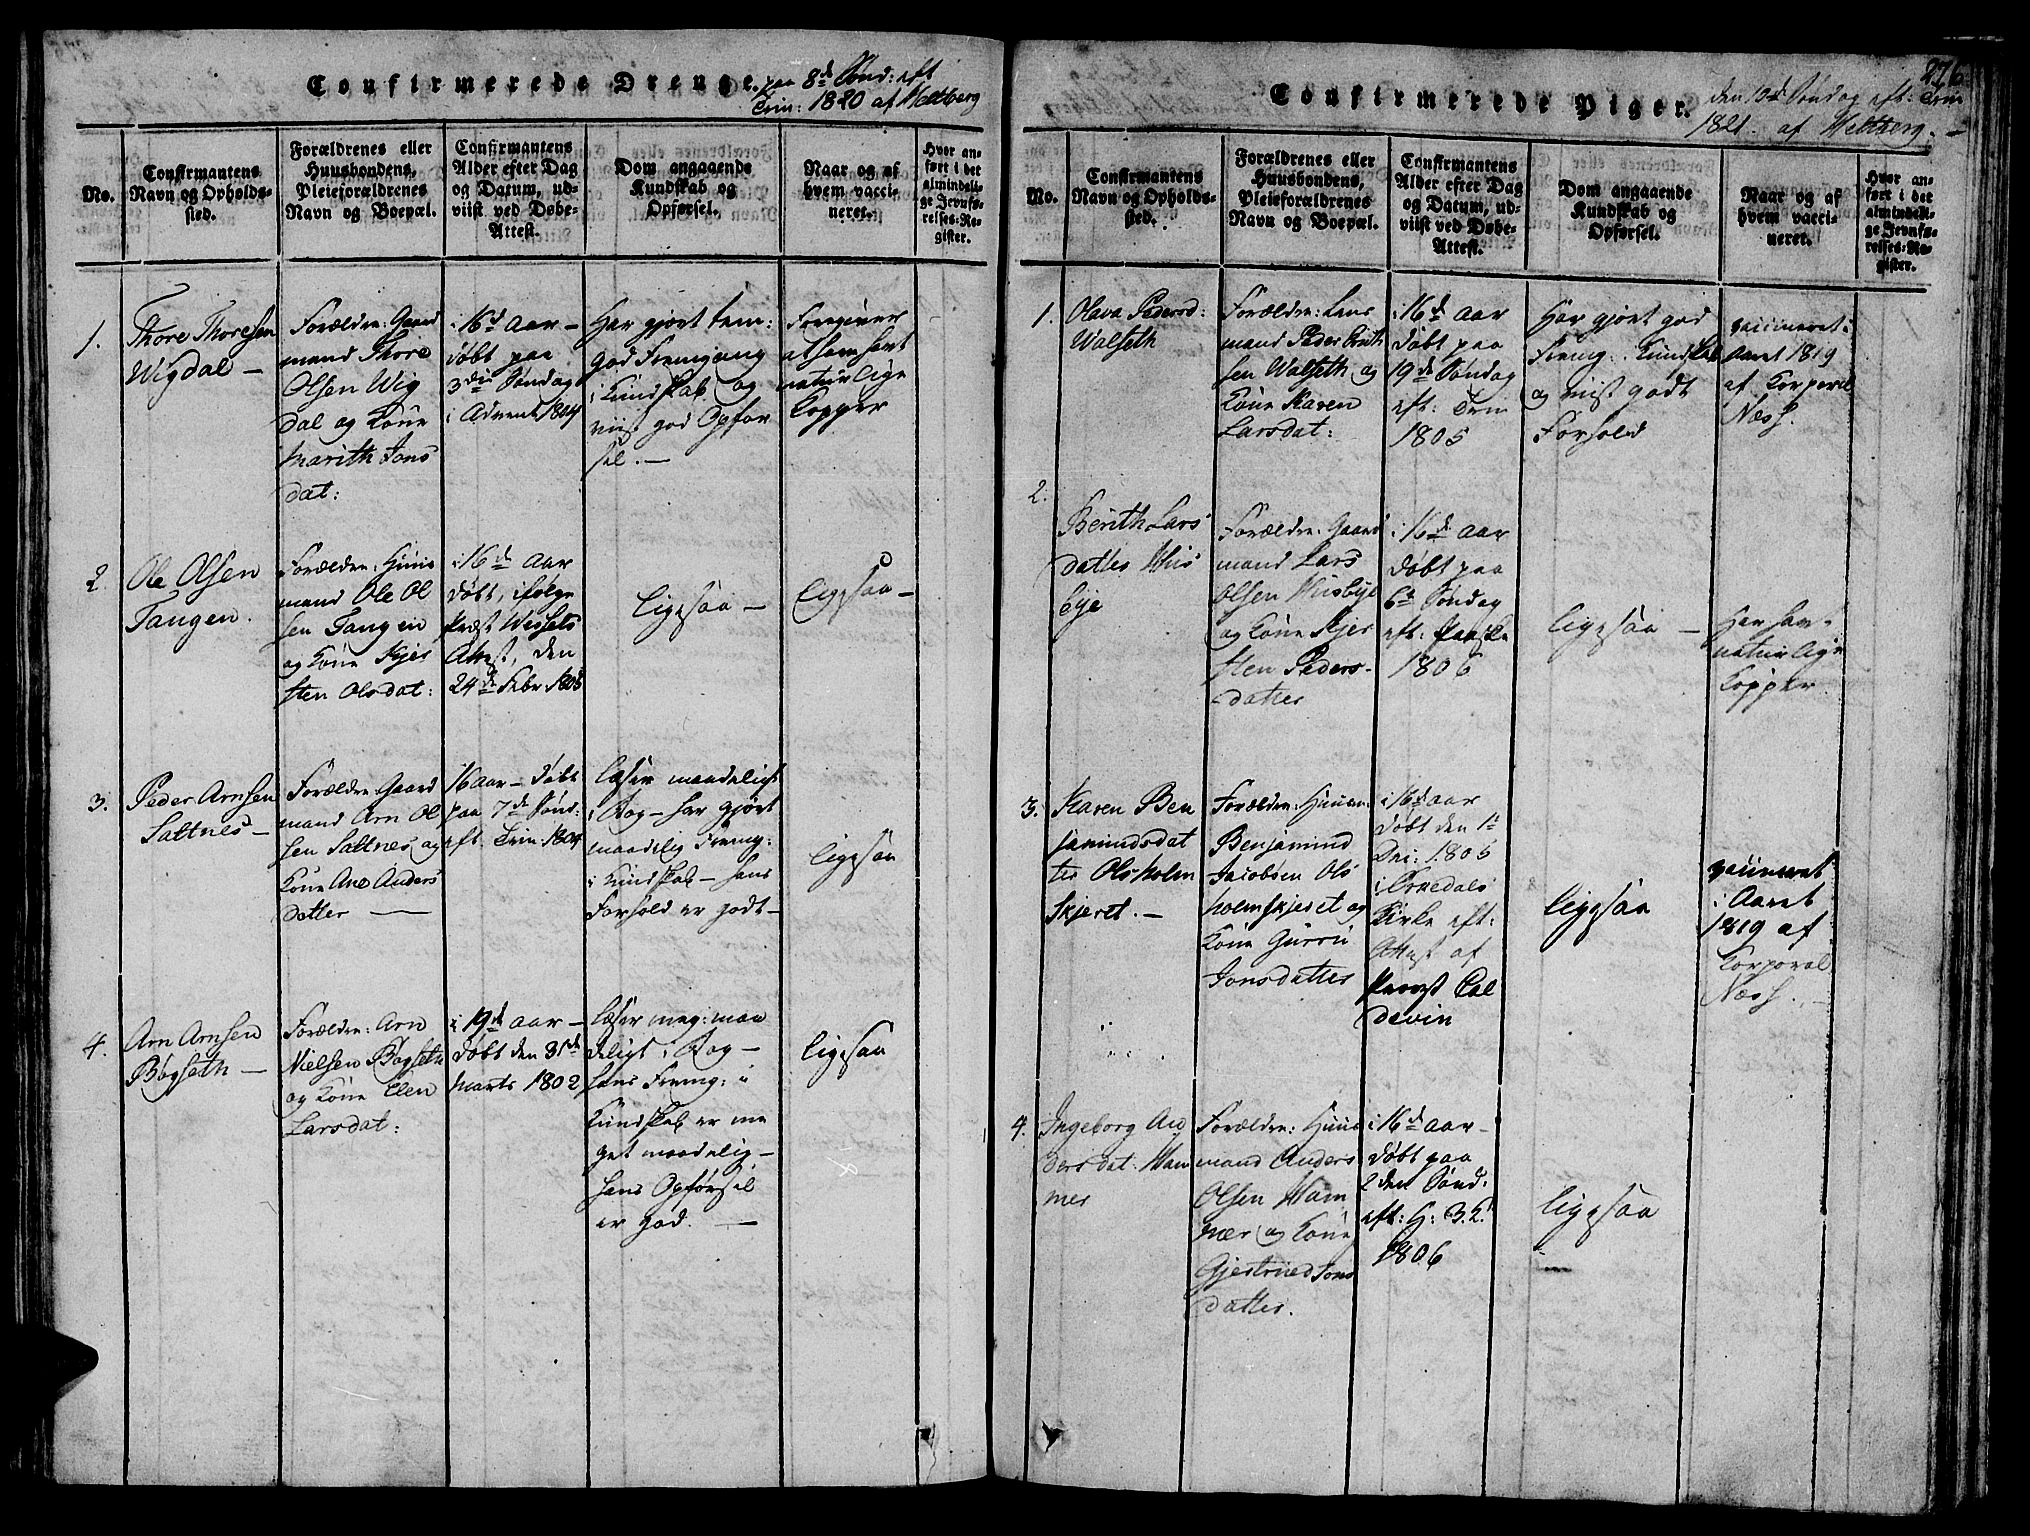 Confirmerede Drenge. paa 8de Sønd: eft
Trin: 1820 af Meltberg
No.
Confirmantens
Navn og Opholds-
sted.
Forældrenes eller
Huusbondens,
Pleieforældrenes
Navn og Boepæl.
Confirmantens
Alder efter Dag
og Datum, ud-
viist ved Døbe-
Attest.
Dom angaaende
Kundskab og
Opførsel.
Naar og af
hvem vacci-
neret.
Hvor an-
ført i det
almindeli-
ge Jevnfø-
relses-Re-
gister.
1.
Thore Thoresen
Wigdal —
Forældre: Gaard
mand Thore
Olsen Wig
dal og Kone
Marith Jons
dat:
i 16de Aar —
døbt paa
3die Søndag
i Advent 1804
Har gjort tem:
god Fremgang
i Kundskab og
viist god Opfør
sel. —
Foregiver
at have havt
naturlige
Kopper
2.
Ole Olsen
Tangen.
Forældre: Huus
mand Ole Ol
sen Tangen
og Kone Kjer
sten Olsdat:
i 16de Aar
døbt, ifølge
Præst Wessels
Attest, den
24de Febr 1805
ligesaa —
ligesaa —
3.
Peder Arnsen
Saltnes —
Forældre: Gaard
mand Arn Ol
sen Saltnes og
Kone Ane Anders
datter —
16 Aar — døbt
paa 7de Sønd:
eft. Trin: 1804
Læser maadeligt
i Bog — har gjort
maadelig Fremg:
i Kundskab — hans
Forhold er godt —
ligesaa
4.
Arn Arnsen
Bøgseth —
Forældre: Arn
Nielsen Bøgseth
og Kone Elen
Larsdat:
i 19de Aar —
døbt den 31de
Marts 1802
Læser meg: maa
deligt i Bog —
hans Fremg: i
Kundskab er me
get maadelig —
hans Opførsel
er god. —
ligesaa
276
Confirmerede Piger. den 10de Søndag eft: Trin
1821. af Meltberg. —
No.
Confirmantens
Navn og Opholds-
sted.
Forældrenes eller
Huusbondens,
Pleieforældrenes
Navn og Boepæl.
Confirmantens
Alder efter Dag
og Datum, ud-
viist ved Døbe-
Attest.
Dom angaaende
Kundskab og
Opførsel.
Naar og af
hvem vacci-
neret.
Hvor an-
ført i det
almindeli-
ge Jevnfø-
relses-Re-
gister.
1.
Olava Pedersd:
Walseth
Forældre: Lens
mand Peder
sen Walseth og
Kone Karen
Larsdat:
i 16de Aar
døbt paa
19de Søndag
eft: Trin
1805
Har gjort god
Fremg: i Kundskab
og viist godt
Forhold
vaccineret i
Aaret 1819
af Korporal
Næss.
2.
Berith Lars
datter Hus
bye
Forældre: Gaard
mand Lars
Olsen Husbye
og Kone Kjer
sten Peders-
datter
i 16de Aar
døbt paa
6te Søndag
eft: Paaske
1806
ligesaa —
Har hav:
naturlige
Kopper.
3.
Karen Ben
jamindsdat
ter Olsholm
skjeret. —
Forældre: Huusm:
Benjamind
Jacobsen Ols
holmskjeret og
Kone Gurru
Jonsdatter
i 16de Aar
døbt den 1ste
Dec: 1805
i Ørkedals
Kirke eft:
Attest af
Provst Col
devin
ligesaa
vaccineret
i Aaret
1819 af
Korporal
Næss. —
4.
Ingeborg An
dersdat: Ham
mer
Forældre: Huus
mand Anders
Olsen Ham
mer og Kone
Gjertrued Jons
datter.
i 16de Aar —
døbt paa
2den Sønd:
eft: H: 3. K:
1806
ligesaa